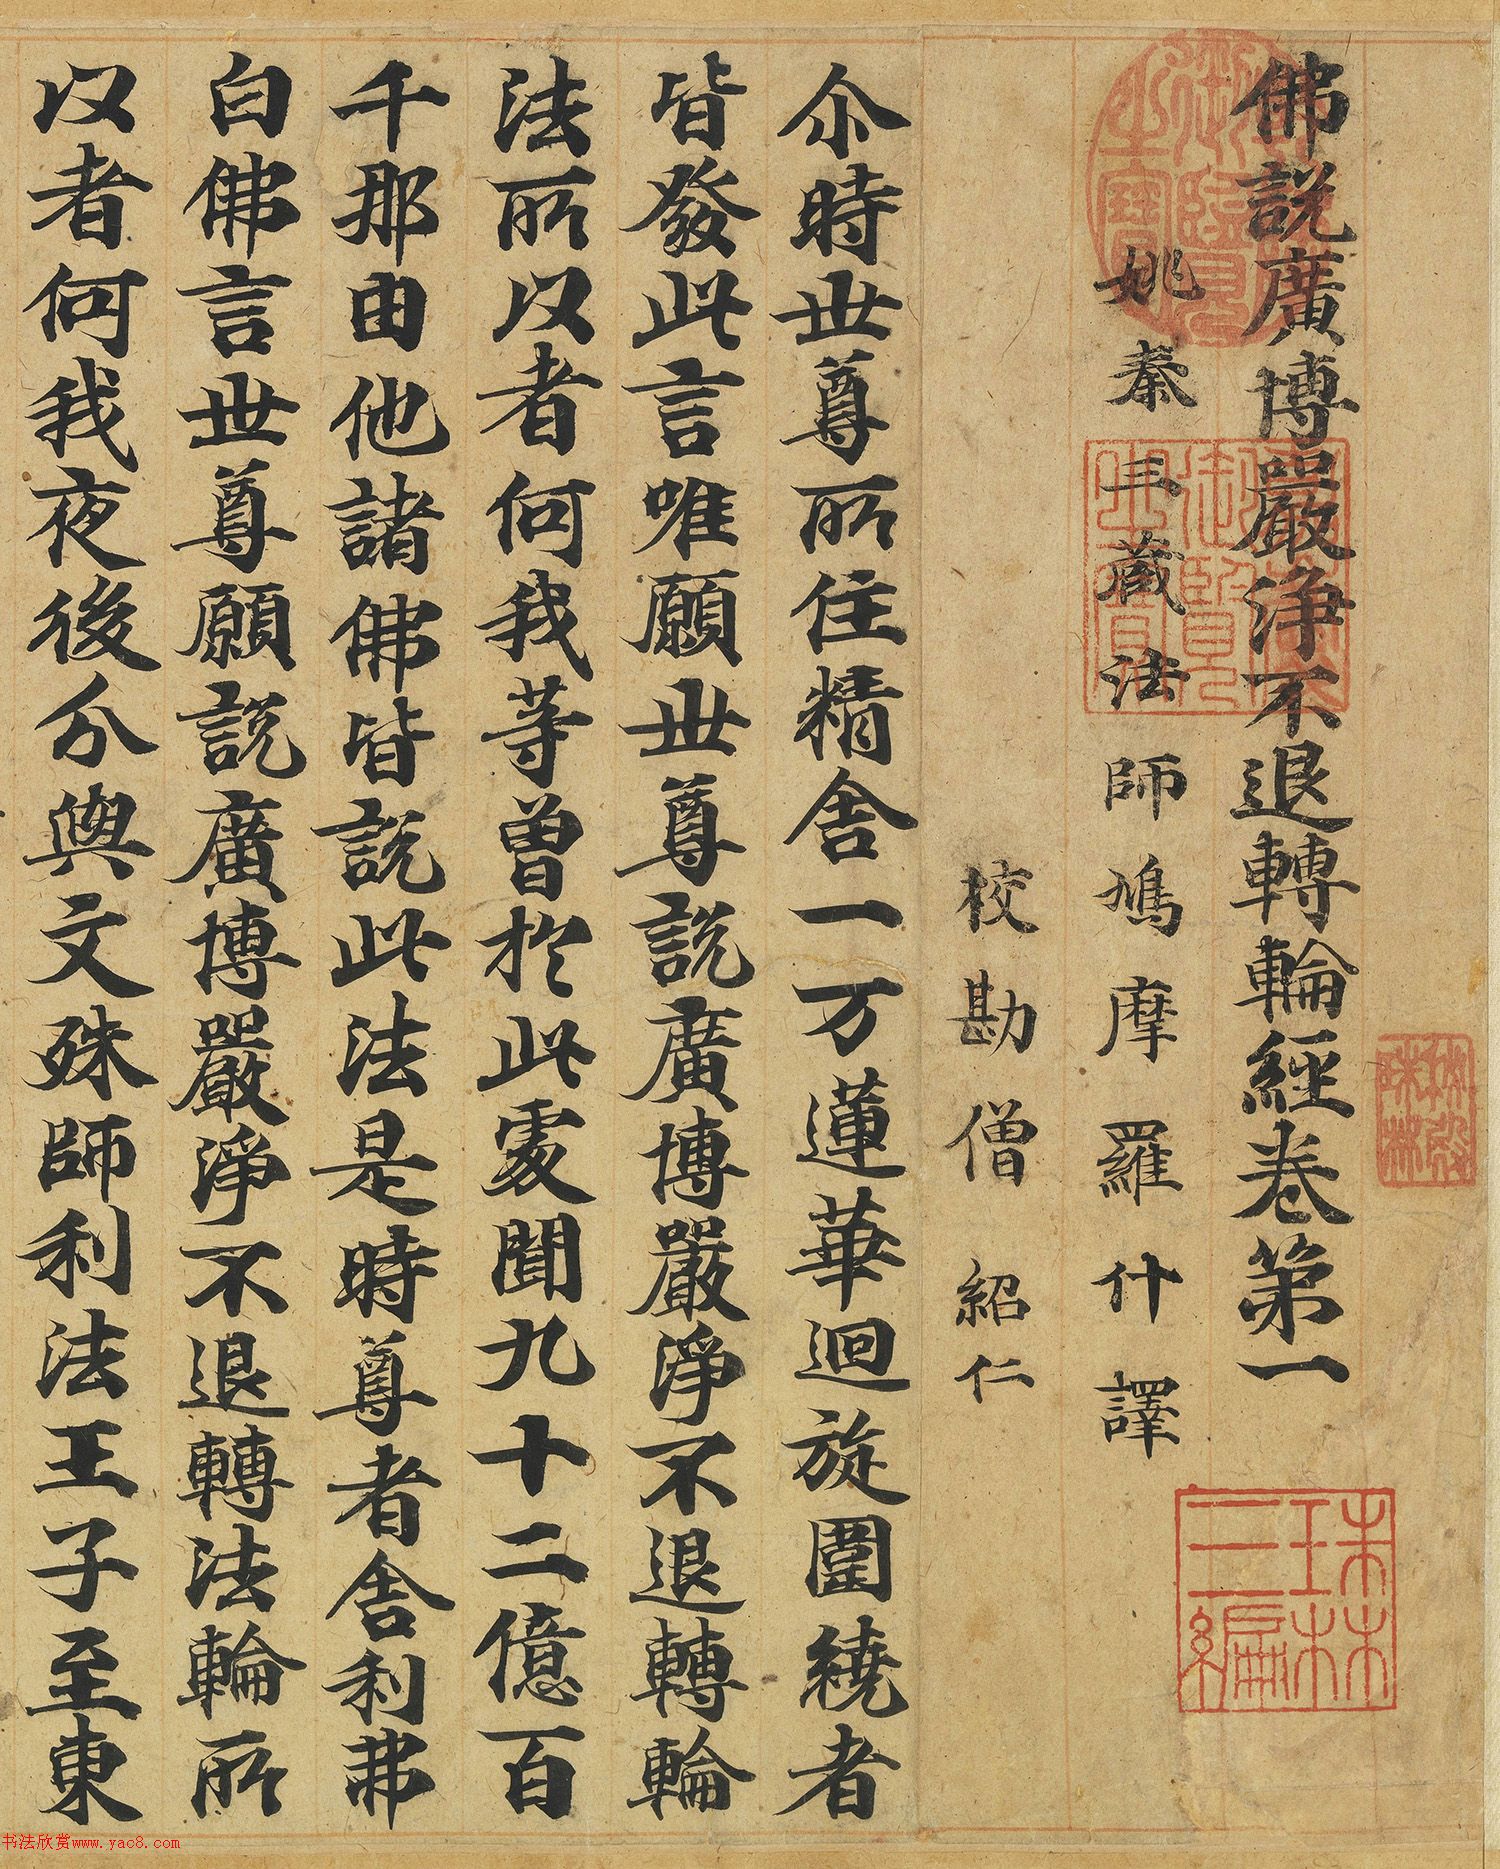 佛說廣博嚴淨不退轉輪經卷第一
姚秦三藏法師鳩摩羅什譯
校勘僧紹仁
尒時世尊所住精舍一万蓮華迴旋圍繞者
皆發此言唯願世尊說廣博嚴淨不退轉輪
法所以者何我等曾於此處聞九十二億百
千那由他諸佛皆說此法是時尊者舍利弗
白佛言世尊願說廣博嚴淨不退轉法輪所
以者何我夜後分與文殊師利法王子至東
三編珠林
书法欣赏www.yac8.com